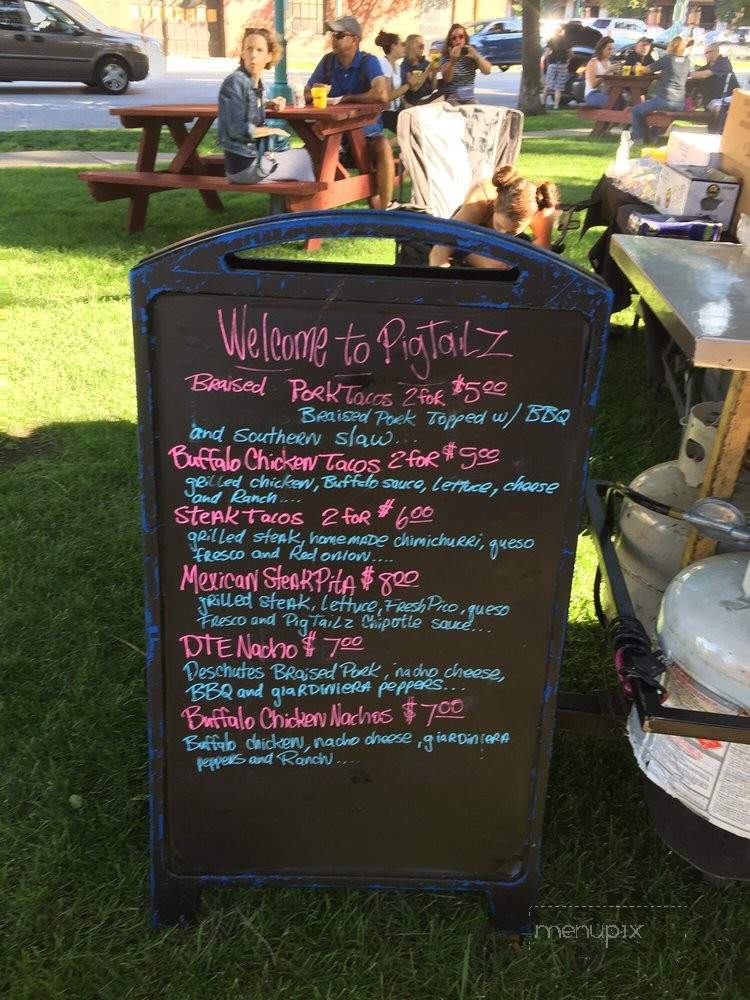 Welcome to PigTailZ
Braised Pork Tacos 2 for $5.00
Braised Pork Topped w/ BBQ
and southern slaw...
Buffalo Chicken Tacos 2 for $5.00
grilled chicken, Buffalo sauce, Lettuce, cheese
and Ranch....
Steak Tacos 2 for $6.00
grilled steak, homemade chimichurri, queso
fresco and Red onion....
Mexican Steak Pita $8.00
grilled steak, Lettuce, Fresh Pico, queso
Fresco and PigTailz Chipotle sauce...
DTE Nacho $7.00
Deschutes Braised Pork, nacho cheese,
BBQ and giardiniera peppers...
Buffalo Chicken Nachos $7.00
Buffalo chicken, nacho cheese, giardiniera
peppers and Ranch....
menupix